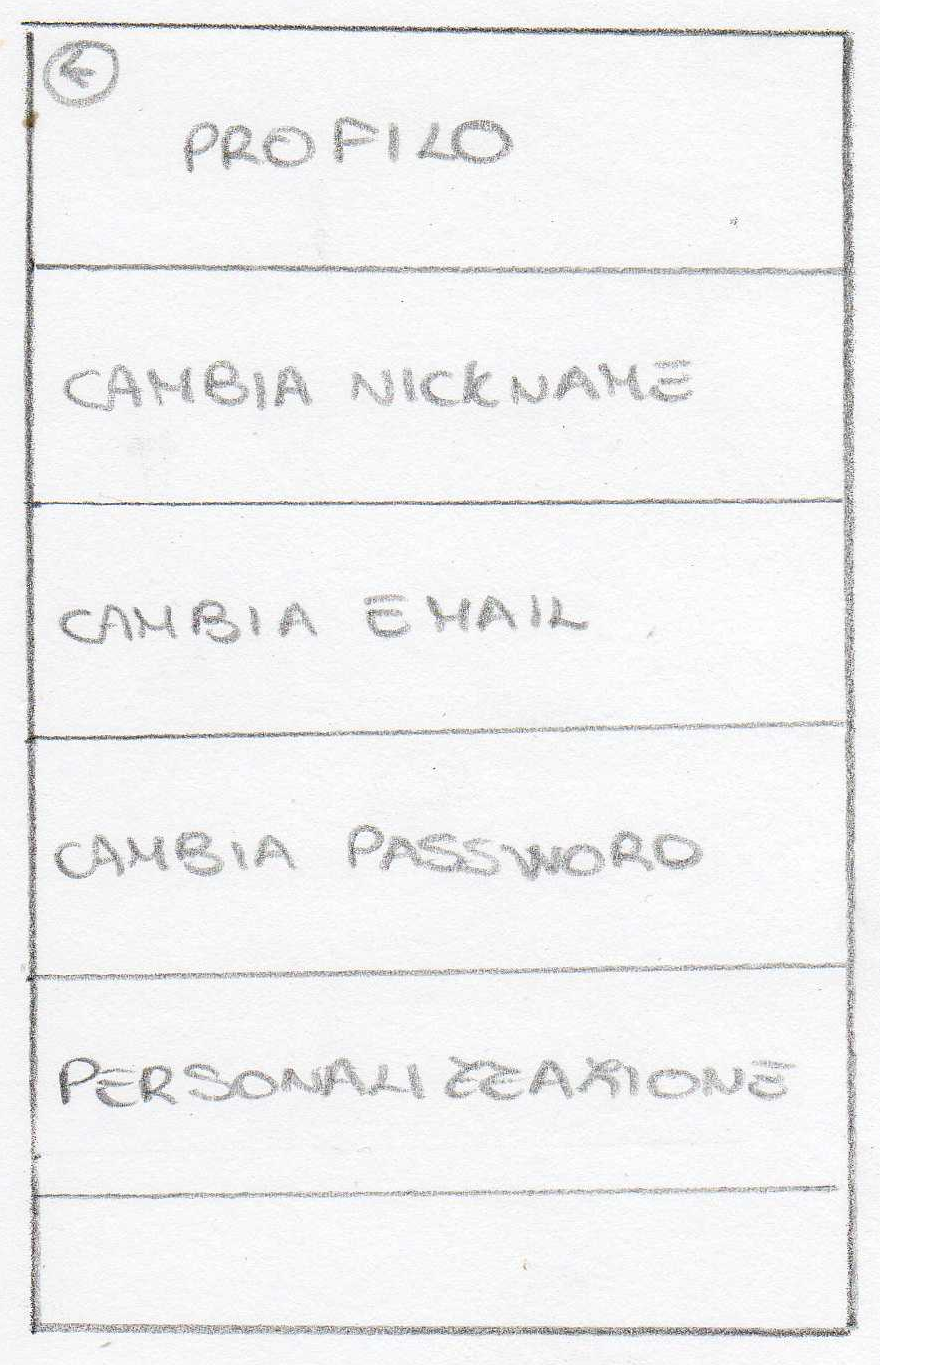 PROFILO
CAMBIA NICKNAME
CAMBIA EMAIL
CAMBIA PASSWORD
PERSONALIZZAZIONE